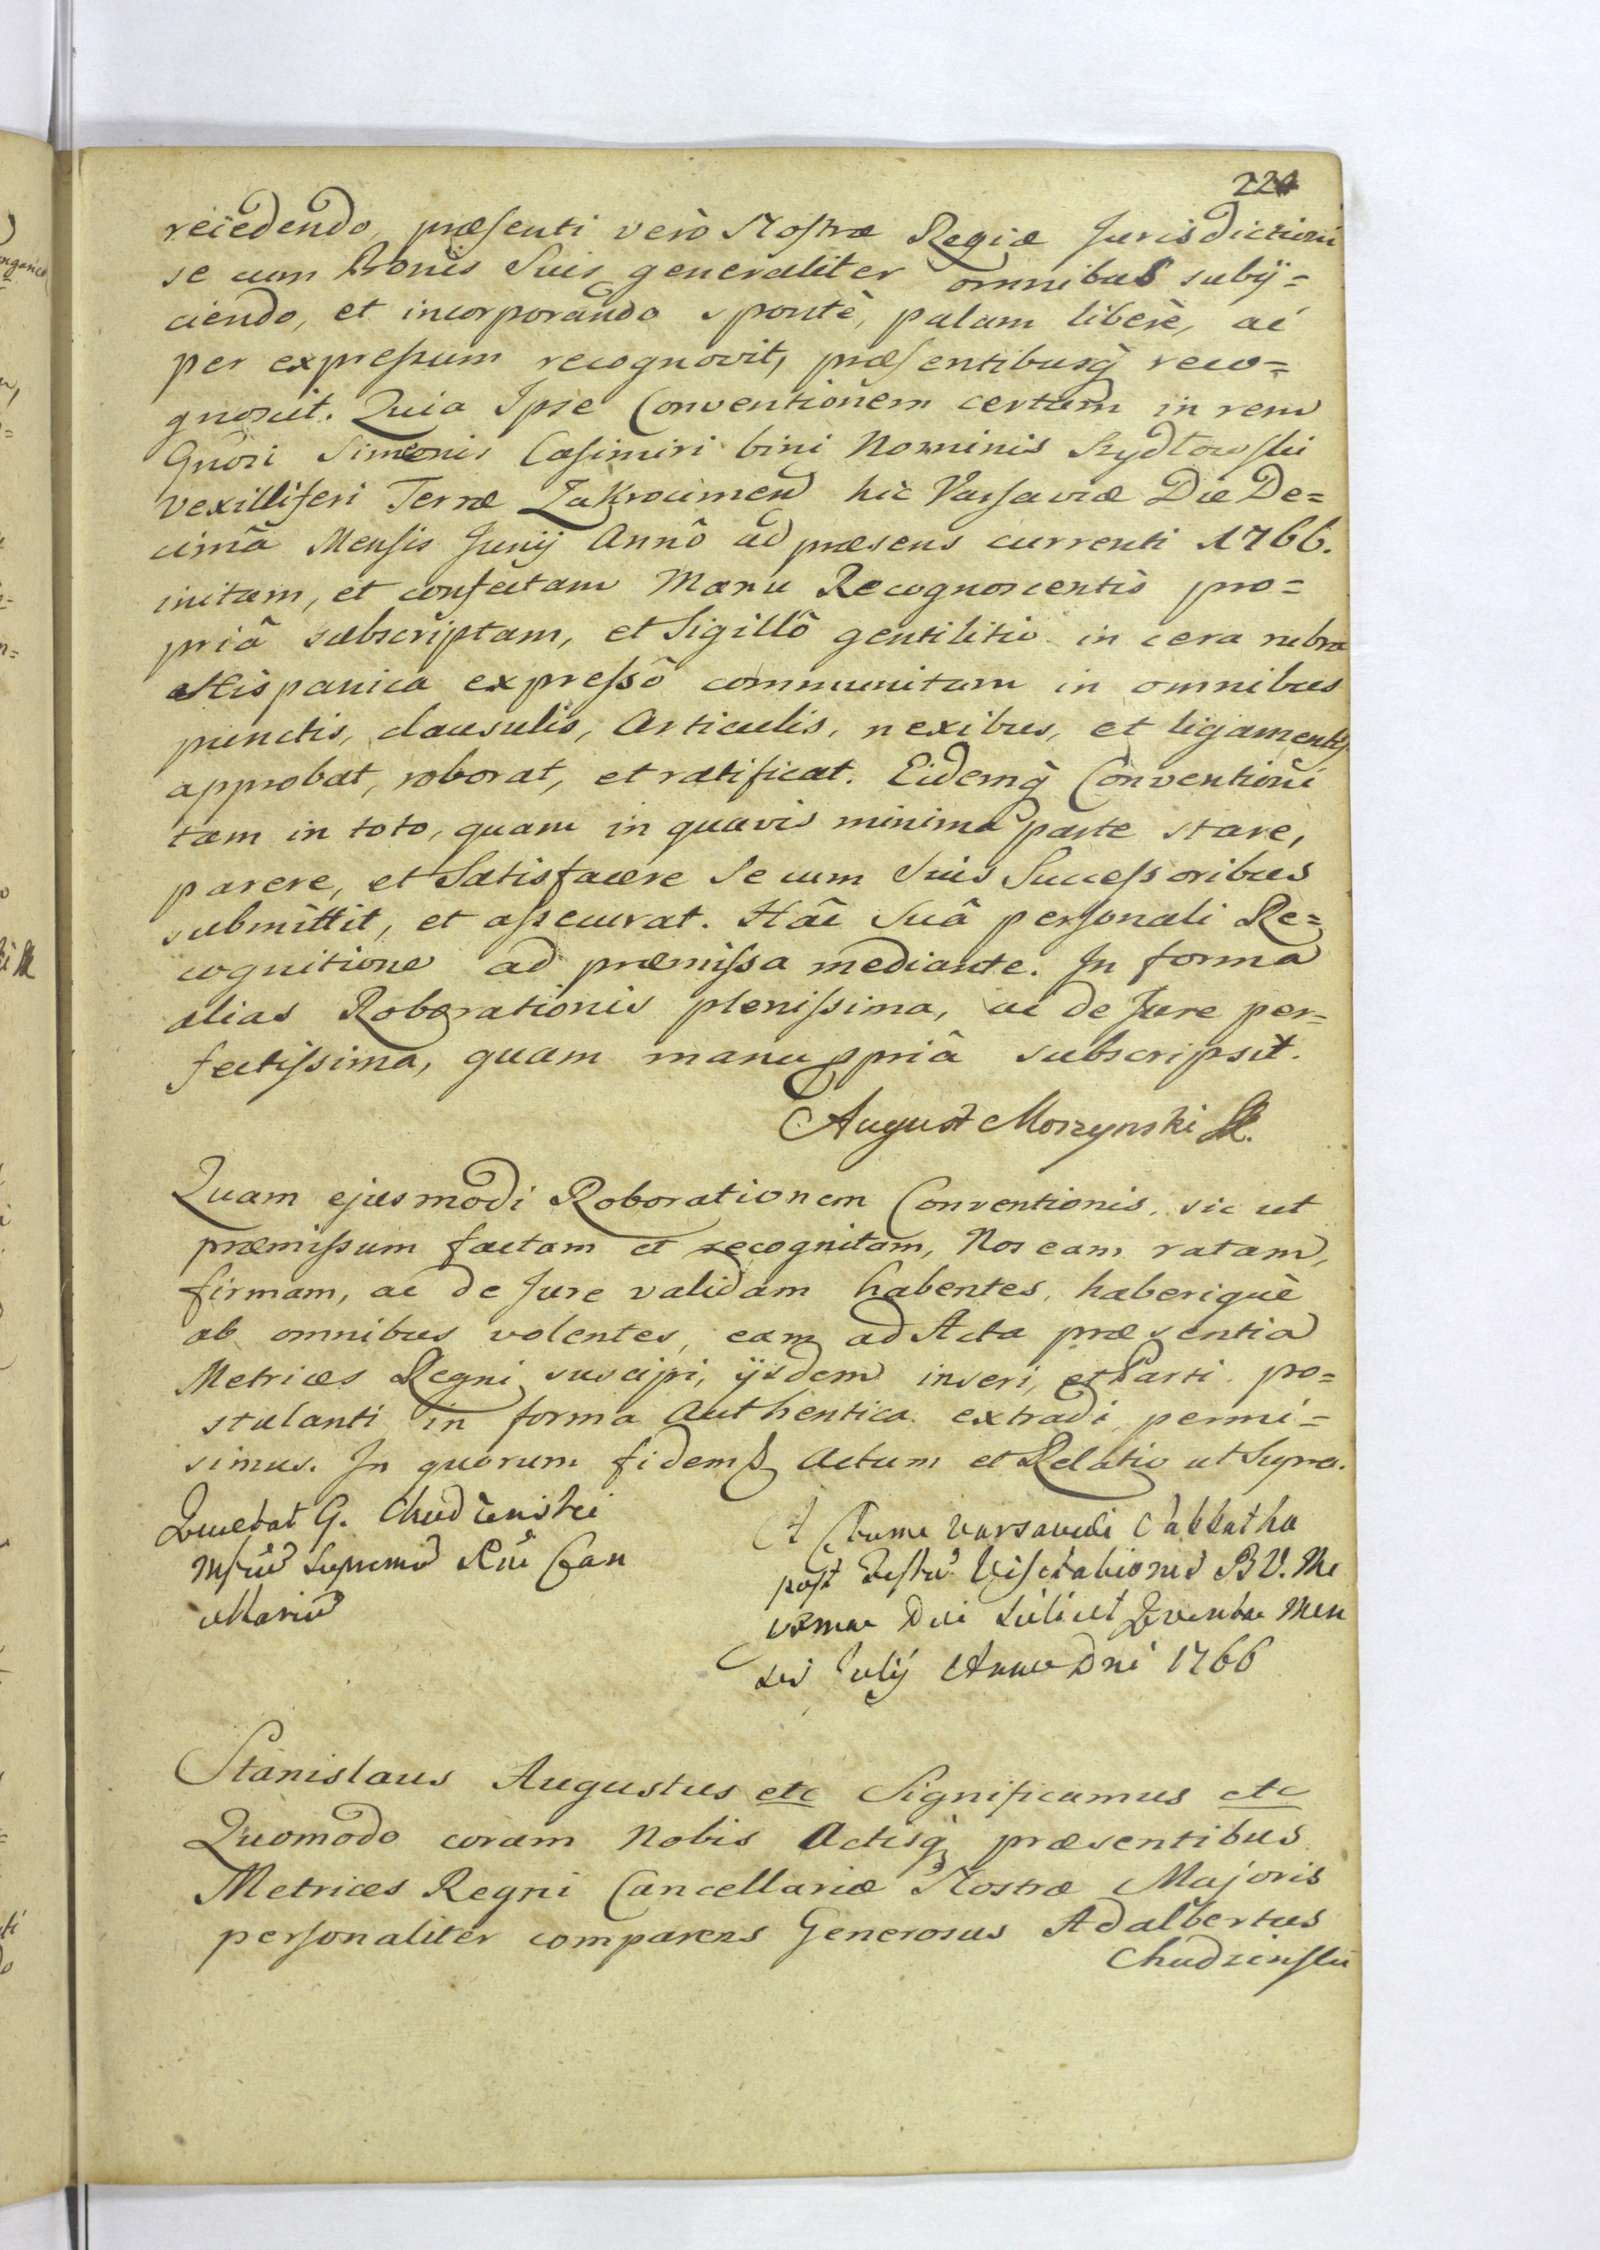 224
recedendo, præsenti verò Nostræ Regiæ Jurisdictioni
se cum Bonis Suis generaliter omnibus subij=
ciendo, et incorporando spontè, palam liberè, ac
per expressum recognovit, præsentibusq̀ reco=
gnoscit. Quia Ipse Conventionem certam in rem
Gnōsi Simeonis Casimiri bini Nominis Szydłowski
Vexilliferi Terræ Zakrocimen hic Varsaviæ Die De=
cimâ Mensis Junij Annô ad præsens currenti 1766.
initam, et confectam Manu Recognoscentis pro=
priâ subscriptam, et Sigillô gentilitio in cera rubra
Hispanica expressô communitam in omnibus
punctis, clausulis, Articulis, nexibus, et ligamentis
approbat, roborat, et ratificat. Eidemq̀ Conventioni
tam in toto, quam in quavis minima parte stare,
parere, et Satisfacere Se cum Suis Successoribus
submittit, et assecurat. Hâc Suâ personali Re=
cognitione ad præmissa mediante. In forma
alias Roborationis plenissima, ac de Jure per=
fectissima, quam manu ppriâ subscripsit.
August Moszynski
Quam ejusmodi Roborationem Conventionis, sic ut
præmissum factam et recognitam, Nos eam ratam,
firmam, ac de Jure validam habentes, haberiquè
ab omnibus volentes, eam ad Acta præsentia
Metrices Regni suscipi, ijsdem inseri, et Parti po=
stulanti in forma Authentica extradi permi=
simus. In quorum fidem Actum et Relatio ut Supra.
G. Chudzinski
Supremus
Actum Varsaviæ Sabbatho
post Festum Visitationis B V. Ma
Die scilicet Quinta Men
sis Julij Anno Dni 1766
Stanislaus Augustus etc Significamus etc
Quomodo coram Nobis Actisq̀ præsentibus
Metrices Regni Cancellariæ Nostræ Majoris
personaliter comparens Generosus Adalbertus
Chudzinski